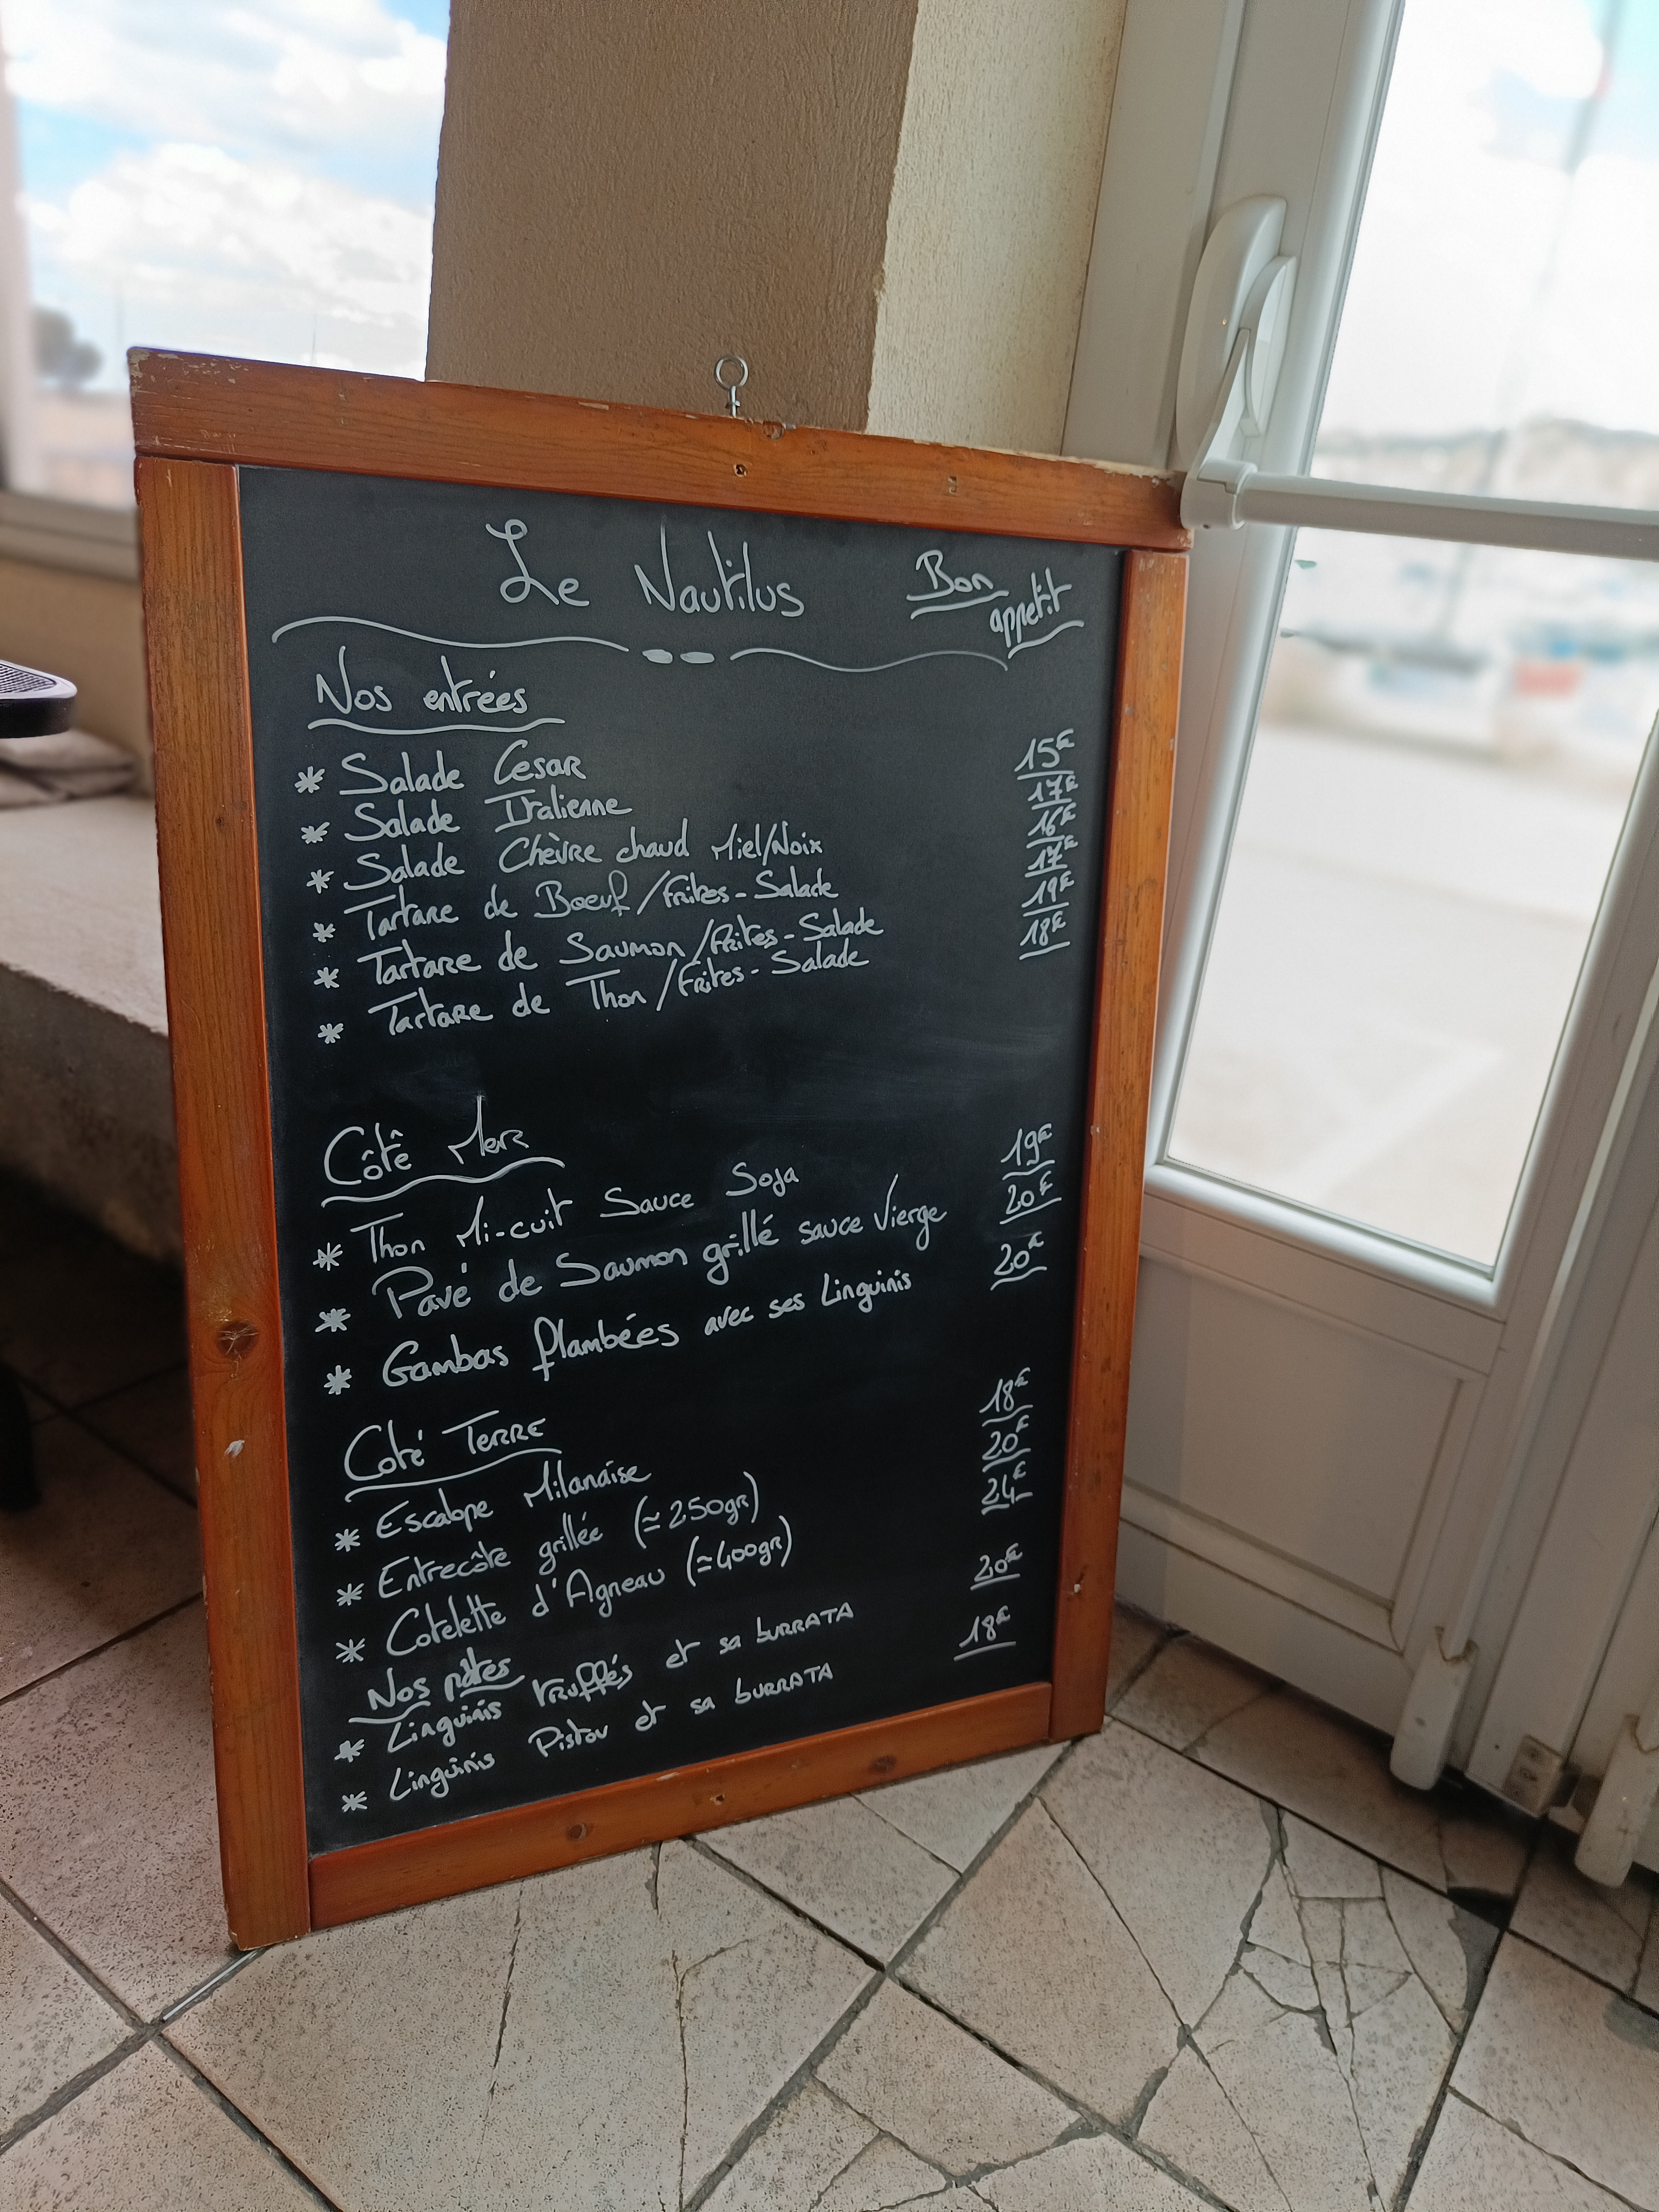 Le Nautilus
Bon
appetit
Nos entrées
* Salade Cesar 15€
* Salade Italienne 17€
* Salade Chèvre chaud Miel/Noix 16€
* Tartare de Boeuf/Frites-Salade 17€
* Tartare de Saumon/Frites-Salade 19€
* Tartare de Thon/Frites-Salade 18€
Côtê Mer
* Thon Mi-cuit Sauce Soja 19€
* Pavé de Saumon grillé sauce Vierge 20€
* Gambas flambées avec ses Linguinis 20€
Coté Terre
* Escalope Milanaise 18€
* Entrecôte grillée (≃250gr) 20€
* Cotelette d'Agneau (≃400gr) 24€
Nos pâtes
* Linguinis truffés et sa burrata 20€
* Linguinis Pistou et sa burrata 18€